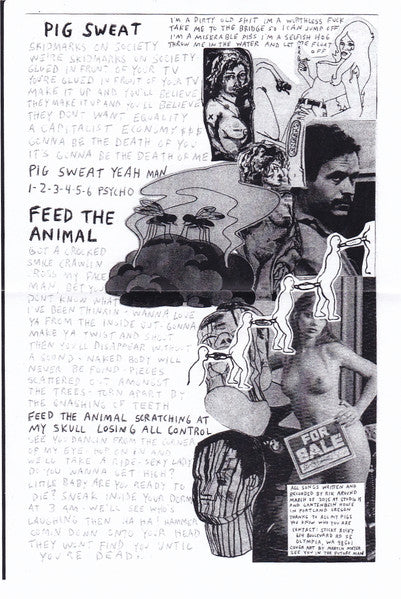 PIG SWEAT
SKIDMARKS ON SOCIETY
WE'RE SKIDMARKS ON SOCIETY
GLUED IN FRONT OF YOUR TV
YOU'RE GLUED IN FRONT OF YOUR TV
MAKE IT UP AND YOU'LL BELIEVE
THEY MAKE IT UP AND YOU'LL BELIEVE
THEY DON'T WANT EQUALITY
A CAPITALIST ECONOMY $$$
GONNA BE THE DEATH OF YOU
IT'S GONNA BE THE DEATH OF ME
PIG SWEAT YEAH MAN
1-2-3-4-5-6 PSYCHO
I'M A DIRTY OLD SHIT I'M A WORTHLESS FUCK
TAKE ME TO THE BRIDGE SO I CAN JUMP OFF
I'M A MISERABLE PISS I'M A SELFISH HOG
THROW ME IN THE WATER AND LET ME FLOAT
OFF
FEED THE
ANIMAL
GOT A CROOKED
SMILE CRAWLIN
CROSS MY FACE
MAN, BET YOU
DON'T KNOW WHAT
I'VE BEEN THINKIN - WANNA LOVE
YA FROM THE INSIDE OUT - GONNA
MAKE YA TWIST AND SHOUT
THEN YOU'LL DISAPPEAR WITHOUT
A SOUND - NAKED BODY WILL
NEVER BE FOUND - PIECES
SCATTERED OUT AMONGST
THE TREES - TORN APART BY
THE GNASHING OF TEETH
FEED THE ANIMAL SCRATCHING AT
MY SKULL LOSING ALL CONTROL
SEE YOU DANCIN FROM THE CORNER
OF MY EYE - HOP ON IN AND
WE'LL TAKE A RIDE - SEXY LADY
DO YOU WANNA GET HIGH?
LITTLE BABY ARE YOU READY TO
DIE? SNEAK INSIDE YOUR DORM
AT 3 AM - WE'LL SEE WHO'S
LAUGHING THEN HA HA! HAMMER
COMIN DOWN ONTO YOUR HEAD
THEY WON'T FIND YOU UNTIL
YOU'RE DEAD.
FOR
SALE
ALL SONGS WRITTEN AND
RECORDED BY RIK
MARCH OF 2015 AT STUDIO H
AND CANTERBEIN HOUSE
IN PORTLAND OREGON
THANKS TO ALL MY PIGS
YOU KNOW WHO YOU ARE
CONTACT: STICKY
BOULEVARD RD SE
OLYMPIA, WA 98501
COVER ART BY MARTIN MEYER
SEE YOU IN THE FUTURE MAN